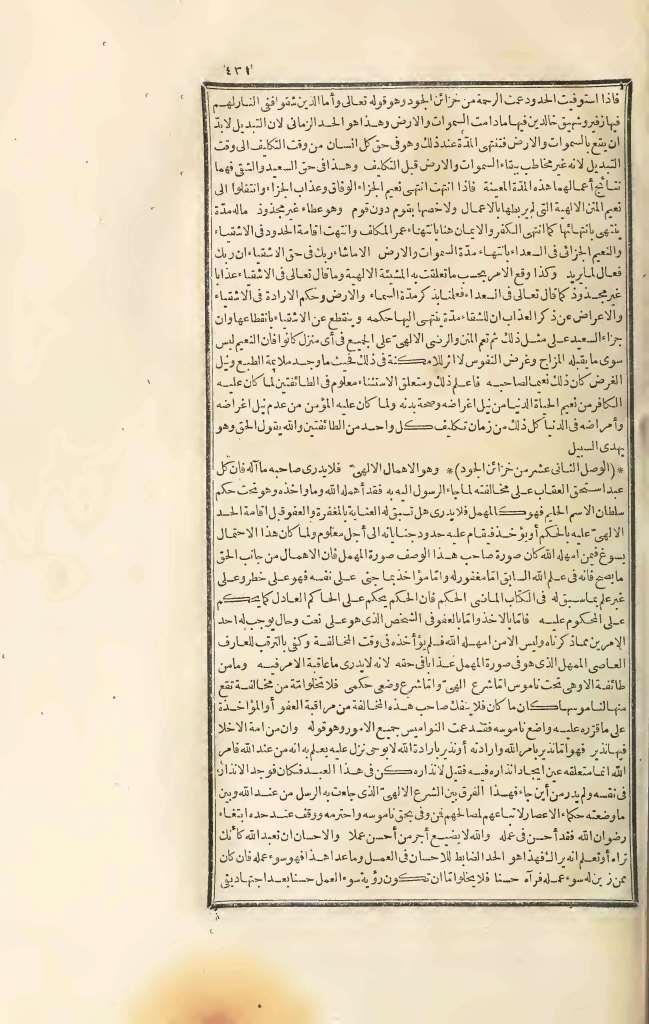 ٤٣١
فاذا استوفيت الحدود عمت الرحمة من خزائن الجود وهو قوله تعالى وأما الذين شقوا ففى النار لهم
فيها زفير وشهيق خالدين فيها ما دامت السموات والارض وهذا هو الحد الزمانى لان التبديل لابد
ان يقع بالسموات والارض فتنتهى المدة عند ذلك وهو فى حق كل انسان من وقت التكليف الى وقت
التبديل لانه غير مخاطب ببقاء السموات والارض قبل التكليف وهذا فى حق السعيد والشقى فهما
نتائج أعمالهما هذه المدة المعينة فاذا انتهت انتهى نعيم الجزاء الوفاق وعذاب الجزاء وانتقلوا الى
نعيم المنن الالهية التى لم يربطها بالاعمال ولا خصها بقوم دون قوم وهو عطاء غير مجذوذ ماله مدة
ينتهى بانتهائها كما انتهى الكفر والايمان هنا بانتهاء عمر المكلف وانتهت اقامة الحدود فى الاشقياء
والنعيم الجزائى فى السعداء بانتهاء مدة السموات والارض الا ما شاء ربك فى حق الاشقياء ان ربك
فعال لما يريد وكذا وقع الامر بحسب ما تعلقت به المشيئة الالهية وما قال تعالى فى الاشقياء عذابا
غير مجذوذ كما قال تعالى فى السعداء فعلنا بذكر مدة السماء والارض وحكم الارادة فى الاشقياء
والاعراض عن ذكر العذاب ان للشقاء مدة ينتهى اليها حكمه وينقطع عن الاشقياء بانقطاعها وان
جزاء السعيد على مثل ذلك ثم تعم المنن والرضى الالهى على الجميع فى أى منزل كانوا فان النعيم ليس
سوى ما يقبله المزاج وغرض النفوس لا اثر للامكنة فى ذلك فحيث ما وجد ملايمة الطبع ونيل
الغرض كان ذلك نعيما لصاحبه فاعلم ذلك ومتعلق الاستثناء معلوم فى الطائفتين لما كان عليه
الكافر من نعيم الحياة الدنيا من نيل اغراضه وصحة بدنه ولما كان عليه المؤمن من عدم نيل اغراضه
وأمراضه فى الدنيا كل ذلك من زمان تكليف كل واحد من الطائفتين والله يقول الحق وهو
يهدى السبيل
*(الوصل الثانى عشر من خزائن الجود)* وهو الاهمال الالهى فلا يدرى صاحبه ما آله فان كل
عبد استحق العقاب على مخالفته لما جاء الرسول اليه به فقد أمهله الله وما واخذه وهو تحت حكم
سلطان الاسم الحليم فهو كالمهمل فلا يدرى هل تسبق له العناية بالمغفرة والعفو قبل اقامة الحد
الالهى عليه بالحكم أو يؤخذ فيقام عليه حدود جناياته الى أجل معلوم ولما كان هذا الاحتمال
يسوغ فيمن امهله الله كان صورة صاحب هذا الوصف صورة المهمل فان الاهمال من جانب الحق
ما يصح فانه فى علم الله السابق اما مغفور له واما مؤاخذ بما جنى على نفسه فهو على خطر وعلى
غير علم بما سبق له فى الكتاب الماضى الحكم فان الحكم يحكم على الحاكم العادل كما يحكم
على المحكوم عليه فاما بالاخذ واما بالعفو فى الشخص الذى هو على نعت وحال يوجب له احد
الامرين مما ذكرناه وليس الامن امهله الله فلم يؤآخذه فى وقت المخالفة وكفى بالترقب للعارف
العاصى الممهل الذى هو فى صورة المهمل عذابا فى حقه لانه لا يدرى ما عاقبة الامر فيه وما من
طائفة الا وهى تحت ناموس اما شرع الهى واما شرع وضعى حكمى فلا تخلو امة من مخالفة تقع
منها لناموسها كان ما كان فلا ينفك صاحب هذه المخالفة من مراقبة العفو أو المؤاخذة
على ما قرره عليه واضع ناموسه فقد عمت النواميس جميع الامور وهو قوله وان من امة الا خلا
فيها نذير فهو اما نذير بامر الله وارادته أو نذير بارادة الله لا بوحى نزل عليه يعلم به انه من عند الله فامر
الله انما متعلقه عين ايجاد انذاره فيه فقيل لانذاره كن فى هذا العبد فكان فوجد الانذار
فى نفسه ولم يدر من أين جاء فهذا الفرق بين الشرع الالهى الذى جاءت به الرسل من عند الله وبين
ما وضعته حكماء الاعصار لاتباعهم لمصالحهم فمن وفى بحق ناموسه واحترمه ووقف عند حده ابتغاء
رضوان الله فقد أحسن فى عمله والله لا يضيع أجر من أحسن عملا والاحسان ان تعبد الله كأنك
تراه أو تعلم انه يراك فهذا هو الحد الضابط للاحسان فى العمل وما عدا هذا فهو سوء عمله فان كان
ممن زين له سوء عمله فرآه حسنا فلا يخلو اما ان تكون رؤية سوء العمل حسنا بعد اجتهاد يفى